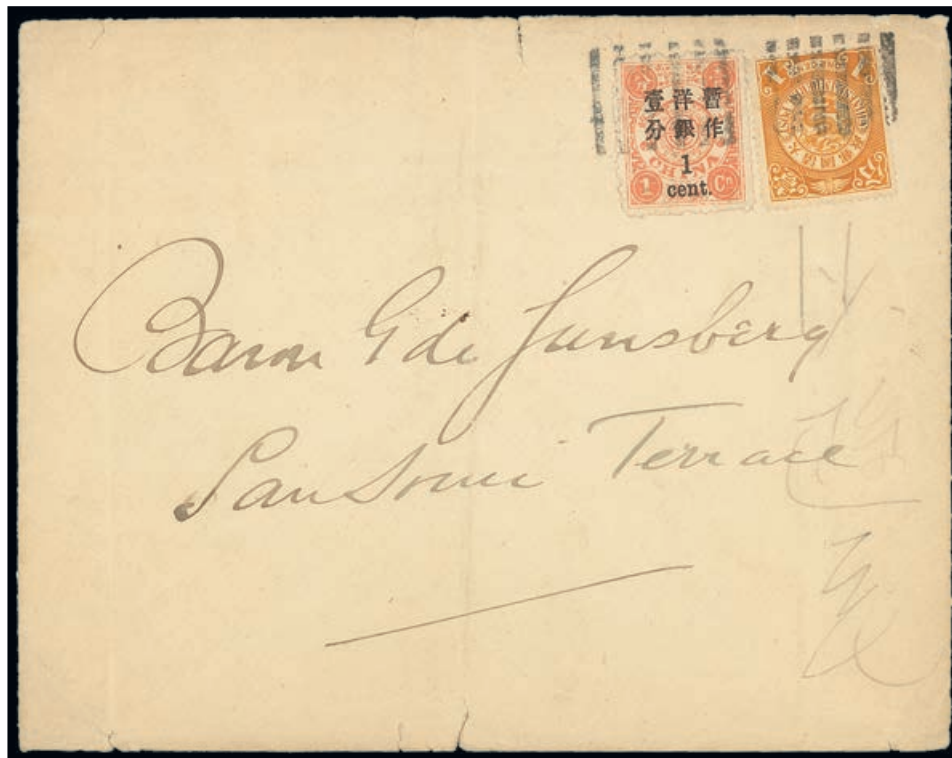 暫作洋銀壹分
1
cent.
CHINA
1 Cn
1
Baron G de Gunsberg
Sans Souci Terrace